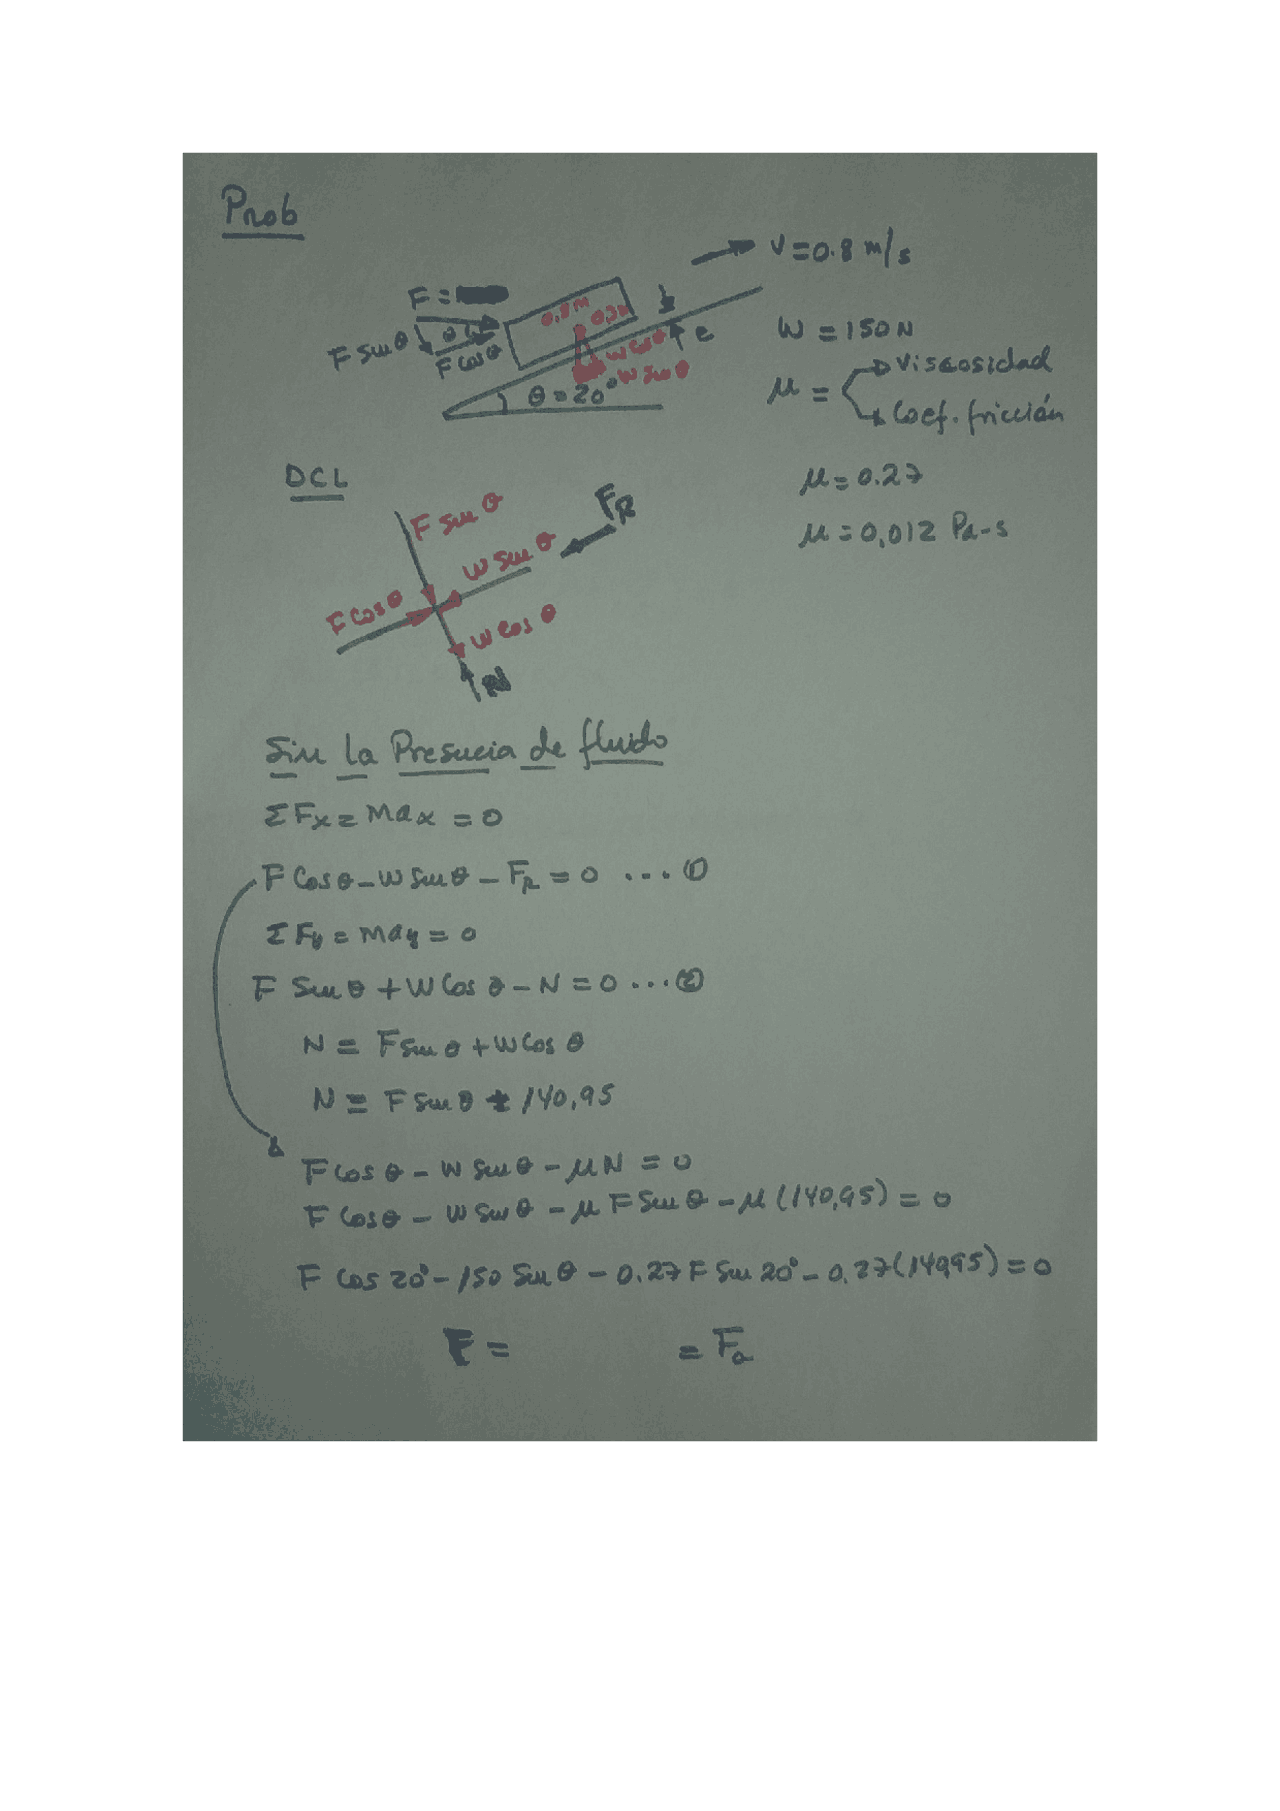 Prob
V = 0.8 m/s
F =
0,8m
F Sen θ
θ
F Cos θ
W Cos θ
W Sen θ
e
θ = 20°
W = 150 N
μ =
Viscosidad
Coef. fricción
μ = 0.27
μ = 0,012 Pa-s
DCL
F Sen θ
FR
W Sen θ
F Cos θ
W Cos θ
N
Sin la Presencia de fluido
ΣFx = Max = 0
F Cos θ - W Sen θ - FR = 0 ... ①
ΣFy = May = 0
F Sen θ + W Cos θ - N = 0 ... ②
N = F Sen θ + W Cos θ
N = F Sen θ + 140,95
F Cos θ - W Sen θ - μN = 0
F Cos θ - W Sen θ - μ F Sen θ - μ (140,95) = 0
F Cos 20° - 150 Sen θ - 0.27 F Sen 20° - 0.27(140,95) = 0
F = = Fa